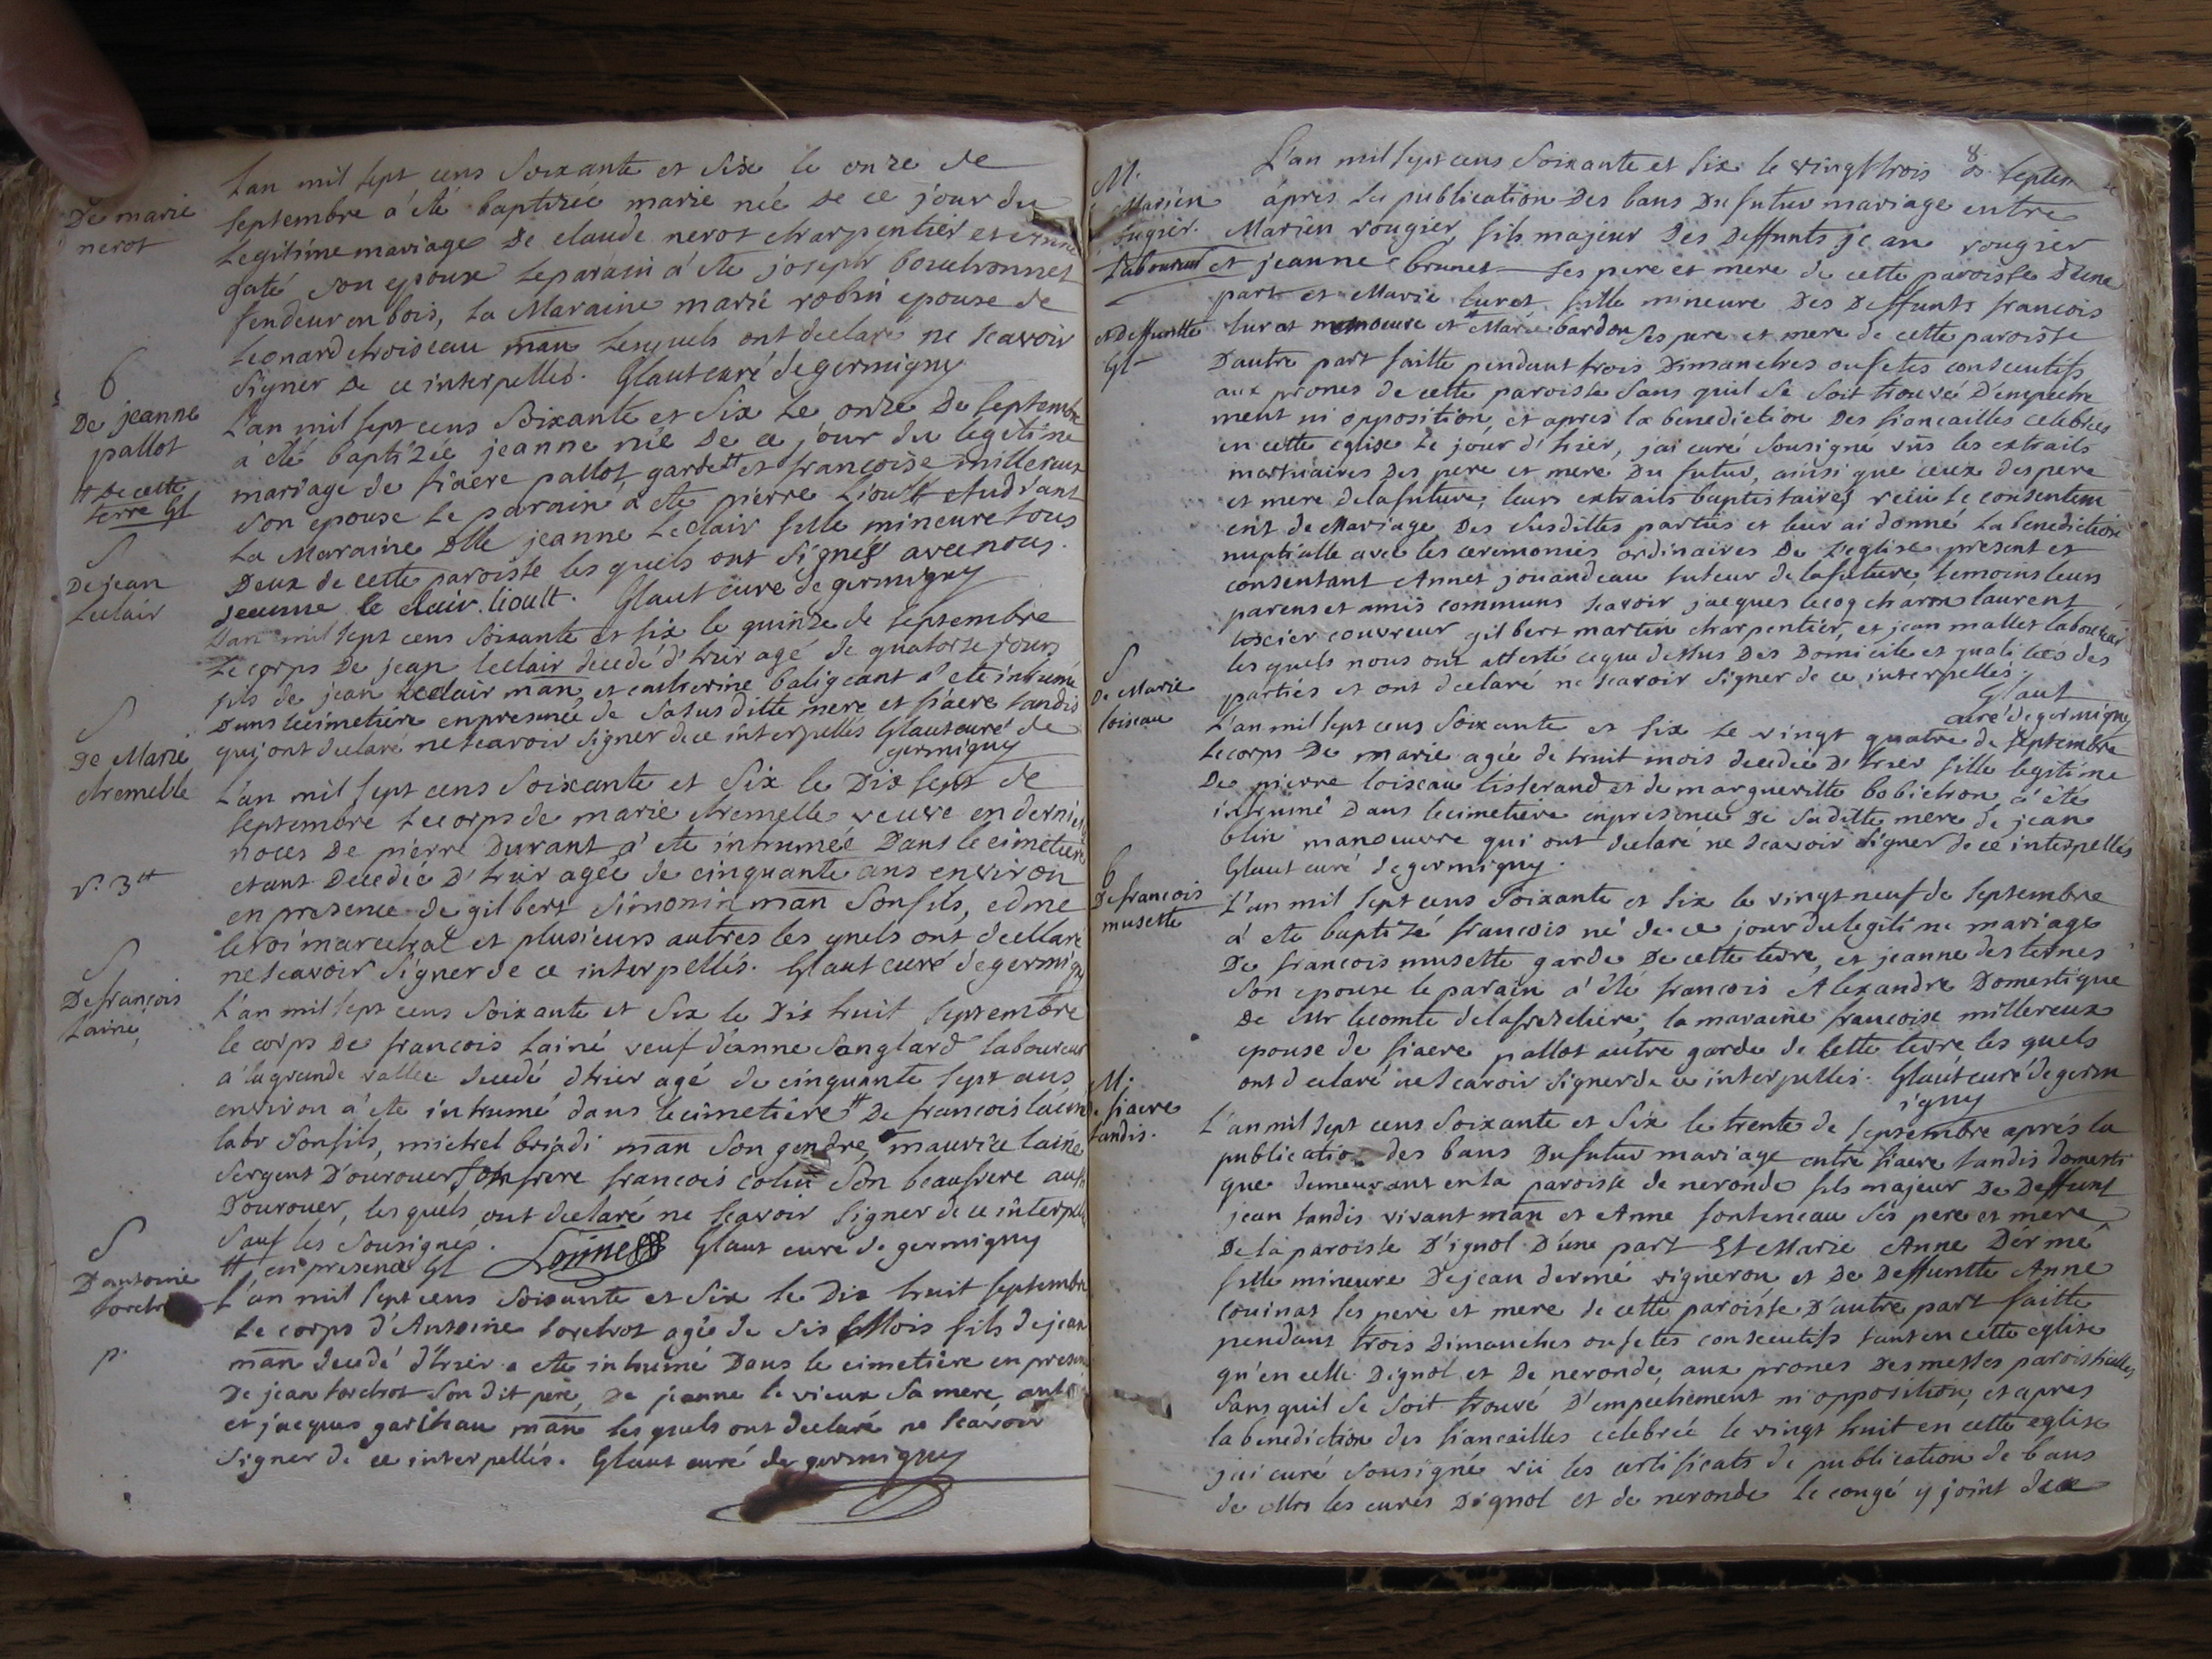 De marie
nerot
L'an mil sept cens Soixante et Six le onze de
Septembre a été baptizée marie née de ce jour du
Legitime mariage de claude nerot charpentier et
gaté son epouse Le parain a été joseph bouchonnet
fendeur en bois, La Maraine marie robin epouse de
Leonard choiseau man Lesquels ont declaré ne scavoir
Signer de ce interpellés. Glaut curé de germigny
6
De jeanne
pallot
L'an mil sept cens Soixante et Six Le onze De Septembre
a été baptizée jeanne née De ce jour du legitime
mariage de fiacre pallot garde # et françoise millereux
# de cette
terre Gl
Son epouse Le parain a été pierre Lioult etudiant
La Maraine Dlle jeanne Leclair fille mineure tous
Deux de cette paroisse les quels ont Signés avec nous.
jeanne le clair. lioult. Glaut cure de germigny
S
De jean
Leclair
L'an mil sept cens Soixante et six le quinze de septembre
Le corps De jean leclair decedé d'hier agé de quatorze jours
fils de jean Leclair man et catherine baligeant a eté inhumé
Dans le cimetiere en presence de Sa susditte mere et fiacre tandis
qui ont declaré ne scavoir signer de ce interpellés Glaut curé de
germigny
S
De Marie
chremelle
L'an mil sept cens Soixante et Six le Dix sept de
septembre Le corps de marie chremelle veuve en derniere
noces De pierre Durant a eté inhumée Dans le cimetiere
etant Decedée D'hier agée de cinquante ans environ
en presence de gilbert Simonin man Son fils, edme
le roi marechal et plusieurs autres les quels ont declaré
ne scavoir Signer de ce interpellés. Glaut curé de germigny
r. 3 #
S
De françois
Lainé
L'an mil sept cens Soixante et Six le Dix huit Septembre
le corps De françois Lainé veuf d'anne Sanglard laboureur
a la grande vallée decedé d'hier agé de cinquante sept ans
environ a été inhumé dans le cimetiere # De françois lainé
labr Son fils, michel briadi man Son gendre, maurize lainé
Sergent D'ourouer Son frere françois colin Son beaufrere aussi
D'ourouer, les quels ont declaré ne scavoir signer de ce interpellés
Sauf les Sousignés. Lainé Glaut curé de germigny
# en presence Gl
S
D'antoine
L'an mil sept cens Soixante et Six le Dix huit septembre
Le corps d'Antoine torchot agé de Six Mois fils de jean
man decedé d'hier a eté inhumé Dans le cimetiere en presence
De jean torchot Son dit pere, De jeanne le vieux Sa mere,
et jacques garibeau man les quels ont declaré ne scavoir
signer de ce interpellés. Glaut curé de germigny
p.
8
M.
Marien
rougier.
Laboureur
L'an mil sept cens Soixante et Six le vingt trois de septembre
après la publication Des bans Du futur mariage entre
Marien rougier fils majeur Des Deffunts jean rougier
et jeanne brunet Ses pere et mere de cette paroisse D'une
part et Marie luret fille mineure Des Deffunts francois
luret manoeuvre et # Marie bardon Ses pere et mere de cette paroisse
# deffuntte
Gl
D'autre part faitte pendant trois Dimanches ou fetes consecutifs
aux prones de cette paroisse Sans quil se soit trouvé D'empeche
ment ni opposition, et apres la benediction Des fiancailles celebrées
en cette eglise Le jour d'hier, jai curé Sousigné vûs les extraits
mortuaires Des pere et mere Du futur, ainsi que ceux des pere
et mere de la future, leurs extraits baptistaires, reçû Le consentem
ent de Mariage Des Susdittes parties et leur ai donné La benediction
nuptialle avec les ceremonies ordinaires De L'eglise present et
consentant Annet jouandeau tuteur de la future, temoins leurs
parens et amis communs scavoir jacques lecoq charon laurent
couvreur gilbert martin charpentier, et jean mallet laboureur
les quels nous ont attesté ce que dessus Des Domicile et qualitées des
parties et ont declaré ne scavoir signer de ce interpellés.
Glaut
curé de germigny
S
De Marie
loiseau
L'an mil sept cens Soixante et Six Le vingt quatre de septembre
Le corps De marie agée de huit mois decedée D'hier fille legitime
De pierre loiseau tisserand et de margueritte bobichon, a été
inhumé Dans le cimetiere en presence De Saditte mere de jean
blin manoeuvre qui ont declaré ne scavoir signer de ce interpellés
Glaut curé de germigny.
6
De francois
musette
L'an mil sept cens Soixante et Six le vingt neuf de septembre
a eté baptizé francois né de ce jour du legitime mariage
De francois musette garde De cette terre, et jeanne des ternes
Son epouse le parain a été francois Alexandre Domestique
De Mr Lecomte de la frezeliere, la maraine francoise millereux
epouse de fiacre pallot autre garde de cette terre les quels
ont declaré ne scavoir signer de ce interpellés. Glaut curé de germ
igny
M.
fiacre
tandis.
L'an mil sept cens Soixante et Six le trente de septembre aprés la
publication des bans Du futur mariage entre fiacre tandis domesti
que demeurant en la paroisse de neronde fils majeur De Deffunt
jean tandis vivant man et Anne fonteneau Ses pere et mere
De la paroisse D'ignol D'une part Et Marie Anne Dermé
fille mineure De jean dermé vigneron et De Deffuntte Anne
couinat Ses pere et mere de cette paroisse D'autre part faitte
pendant trois Dimanches ou fetes consecutifs tant en cette eglise
qu'en celle Dignol et De neronde, aux prones Des messes paroissialles
Sans quil Se Soit trouvé D'empechement ni opposition, et apres
la benediction des fiancailles celebrée le vingt huit en cette eglise
jai curé Sousigné vû les certificats de publication de bans
de Mrs les curés Dignol et de neronde le congé y joint de ce